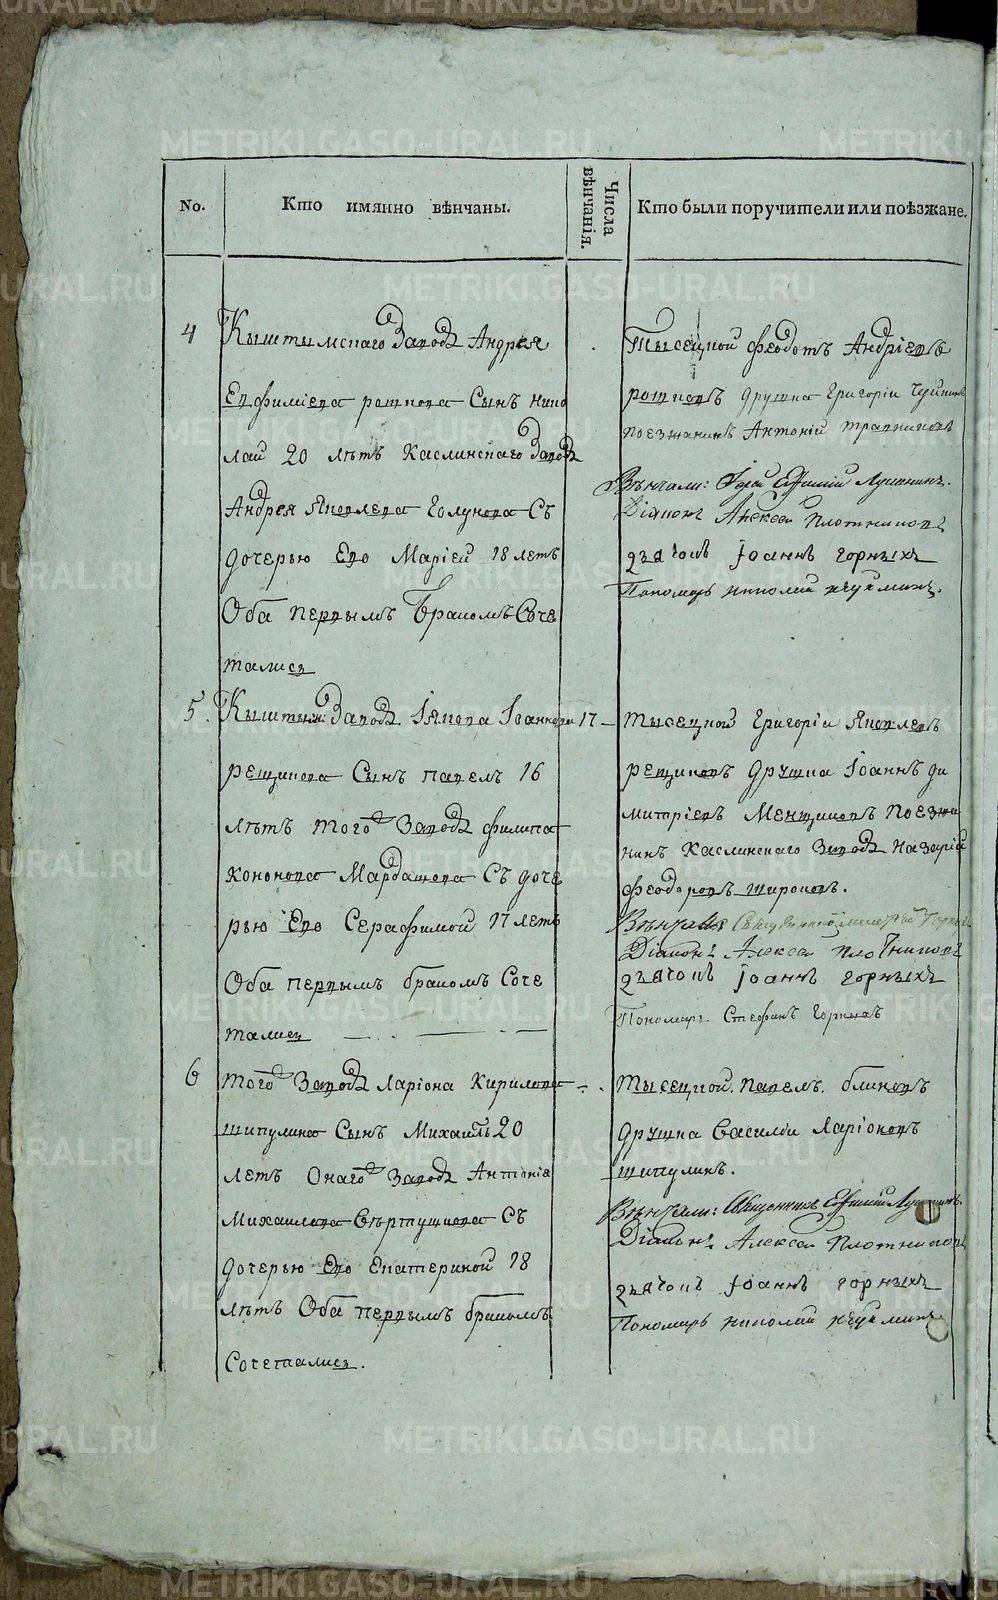 No.
Кто имянно вѣнчаны.
Числа вѣнчанія.
Кто были поручители или поѣзжане.
4
Кыштымскаго Завода Андрея
Евфиміева сынъ Нико
лай 20 лѣтъ Каслинскаго Завода
Андрея Яковлева Голунова Съ
дочерью Его Маріей 18 летъ
Оба первымъ бракомъ Соче
тались
Тысецкой Феодотъ Андріевъ
дружка Григорій
поезжанинъ Антоній Травниковъ
Вѣнчали: Іерей Ефимій
Діаконъ Алексей Плотниковъ
дьячокъ Іоаннъ горныхъ
Пономарь николай
5.
Кыштым: Завода Іякова Іоаннова
рещикова Сынъ Павелъ 16
лѣтъ того Завода филипа
кононова Мардашева Съ доче
рью Его Серафимой 17 летъ
Оба первымъ бракомъ Соче
тались
17
Тысецкой Григоріи Яковлевъ
рещиковъ дружка Іоаннъ ди
митріевъ Менщиковъ поезжа
нинъ Каслинскаго Завода Назарій
феодоровъ широковъ.
Вѣнчалъ Священно
Діаконъ Алексей Плотниковъ
дьячокъ Іоаннъ горныхъ
Пономарь Стефанъ Горныхъ
6
того Завода Ларіона Кирилова
шипулина Сынъ Михаилъ 20
летъ Онаго Завода Антонія
Михаилова Съ
дочерью Его Екатериной 18
лѣтъ Оба первымъ бракомъ
Сочетались.
Тысецкой Павелъ блиновъ
дружка Василіи Ларіоновъ
шипулинъ.
Вѣнчали: Священникъ Ефимій
Діаконъ Алексей Плотниковъ
дьячокъ Іоаннъ горныхъ
Пономарь николай
METRIKI.GASO-URAL.RU